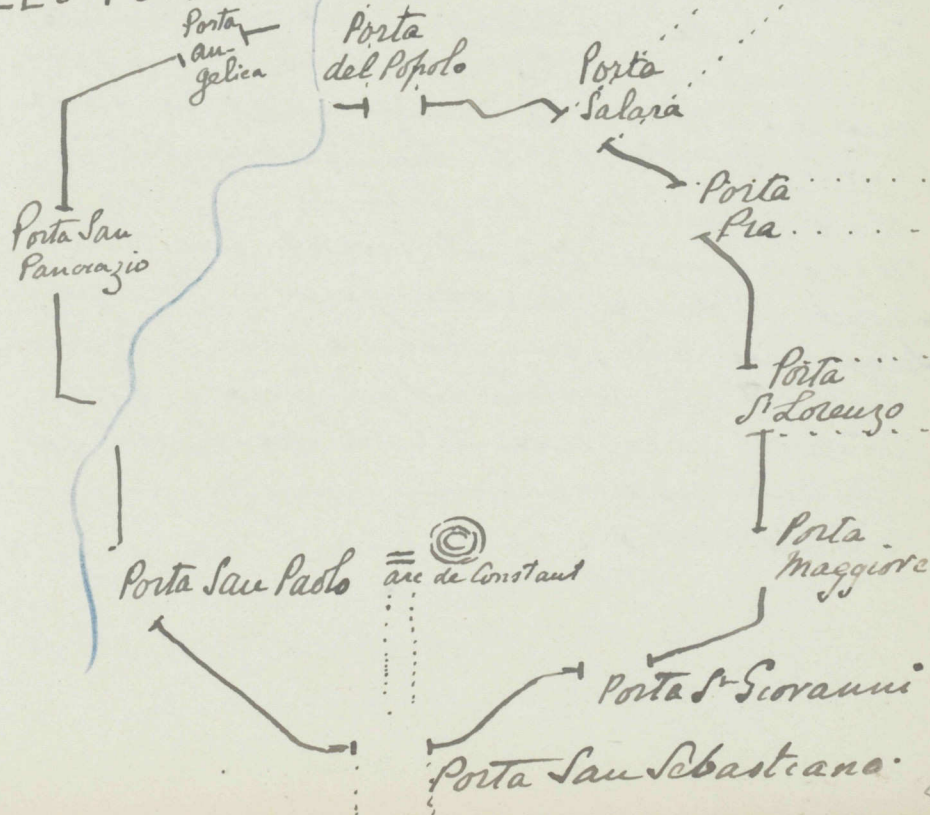 Porta
an-
gelica
Porta
del Popolo
Porta
Salara
Porta
Pia
Porta San
Pancrazio
Porta
St Lorenzo
Porta
Maggiore
Porta San Paolo
arc de Constant
Porta St Giovanni
Porta San Sebastiano